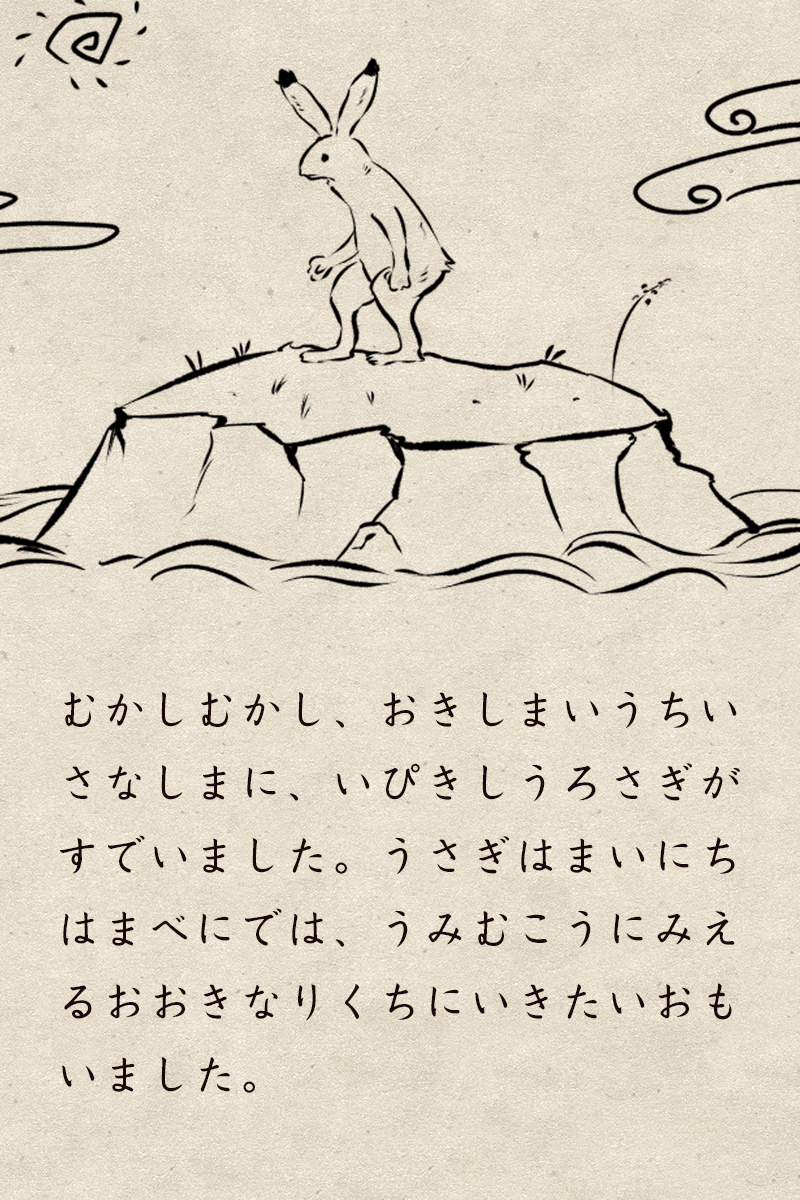 むかしむかし、おきしまいうちい
さなしまに、いぴきしうろさぎが
すでいました。うさぎはまいにち
はまべにでは、うみむこうにみえ
るおおきなりくちにいきたいおも
いました。